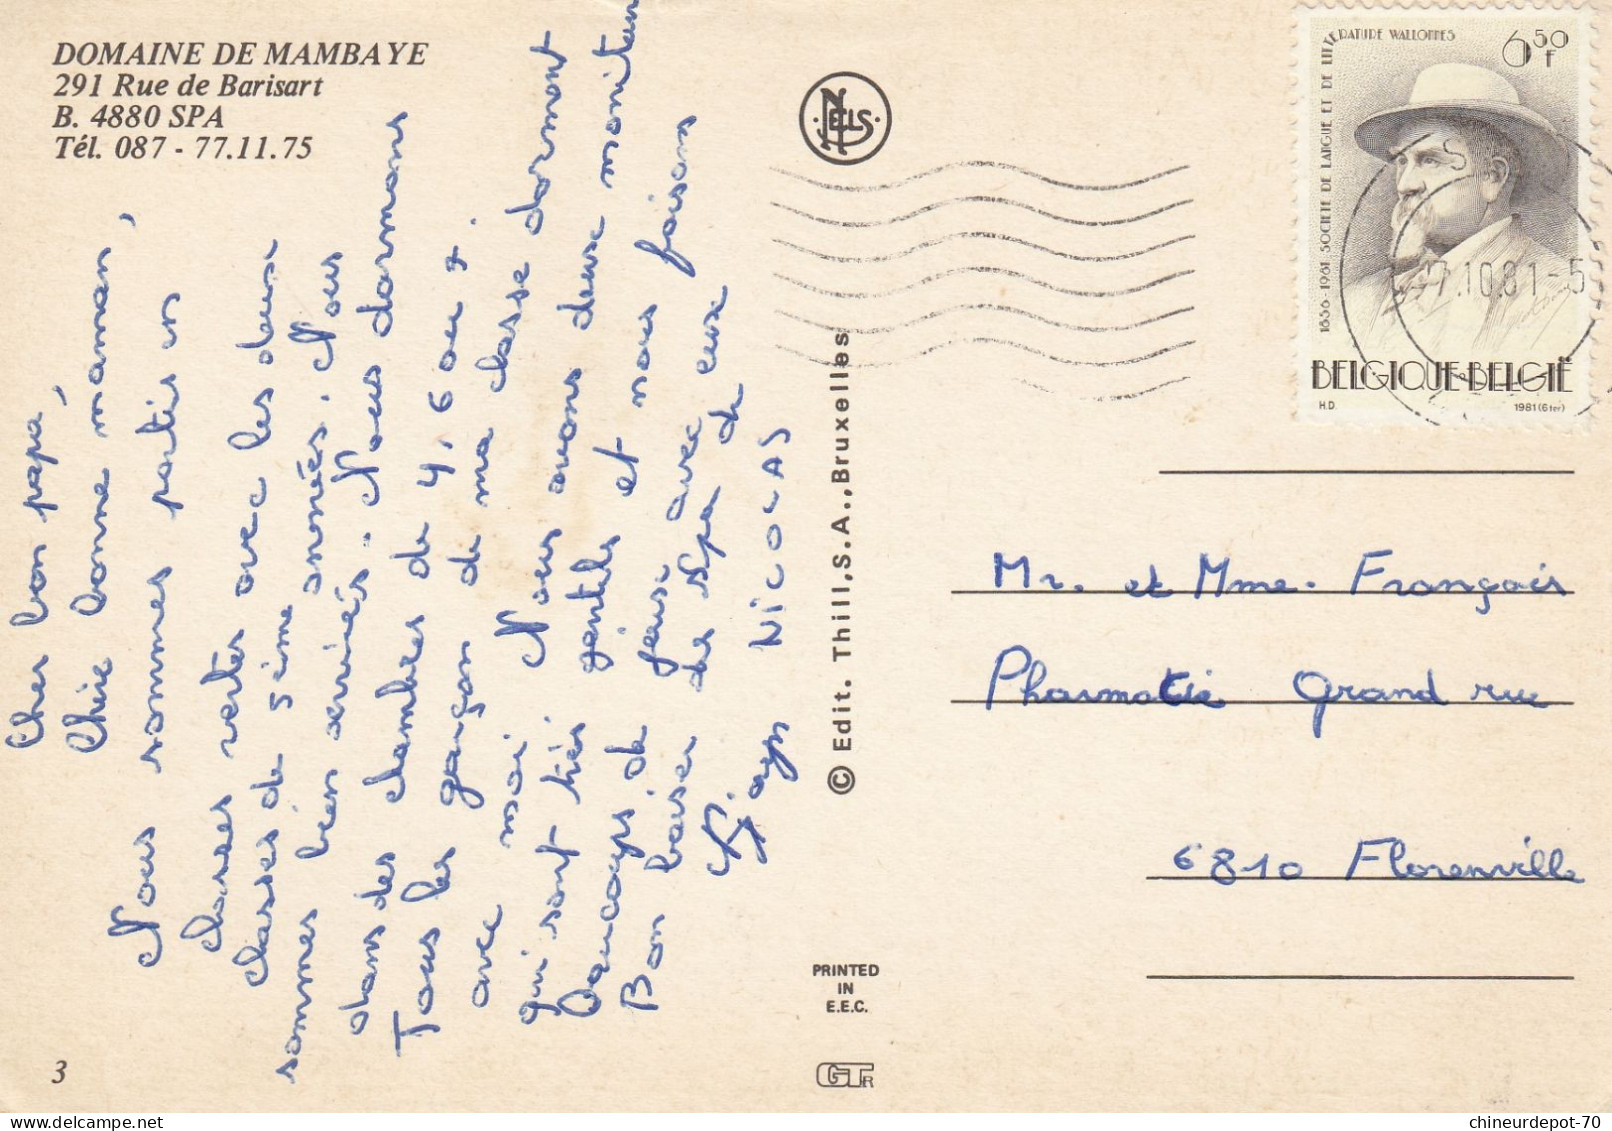 DOMAINE DE MAMBAYE
291 Rue de Barisart
B. 4880 SPA
Tél. 087 - 77.11.75
Cher bon papa,
Chère bonne maman,
Nous sommes partis en
classes vertes avec les deux
classes de 5ème années. Nous
sommes bien arrivés. Nous dormons
dans des chambres de 4, 6 ou 7.
Tous les garçon de ma classe dorment
avec moi. Nous avons deux moniteurs
qui sont très gentils et nous faisons
beaucoups de jeux avec eux
Bon baiser de Spa de
NICOLAS
3
NELS
© Edit. Thill, S.A., Bruxelles
PRINTED
IN
E.E.C.
GTR
1856-1981 SOCIETE DE LANGUE ET DE LITTERATURE WALLONNES
6 50 F
BELGIQUE-BELGIË
H.D.
1981 (6ter)
17.10.81-5
Mr. et Mme. François
Pharmacie Grand rue
6810 Florenville
chineurdepot-70